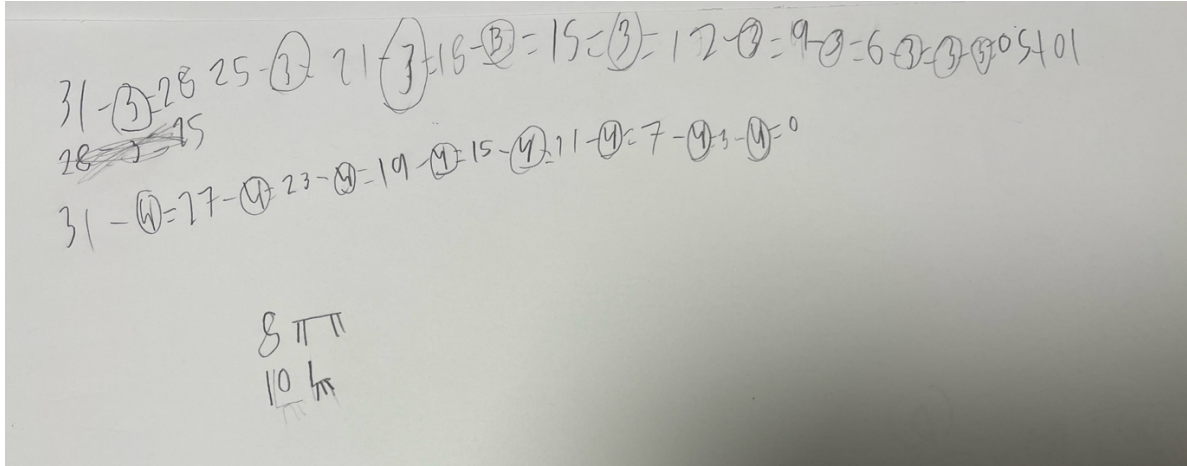 31 - 3 = 28 25 - 3 - 21 - 3 = 18 - 3 = 15 = 3 = 12 - 3 = 9 - 3 = 6 - 3 = 3 - 3 = 0
28 - 3 = 25
31 - 4 = 27 - 4 = 23 - 4 = 19 - 4 = 15 - 4 = 11 - 4 = 7 - 4 = 3 - 4 = 0
8
10